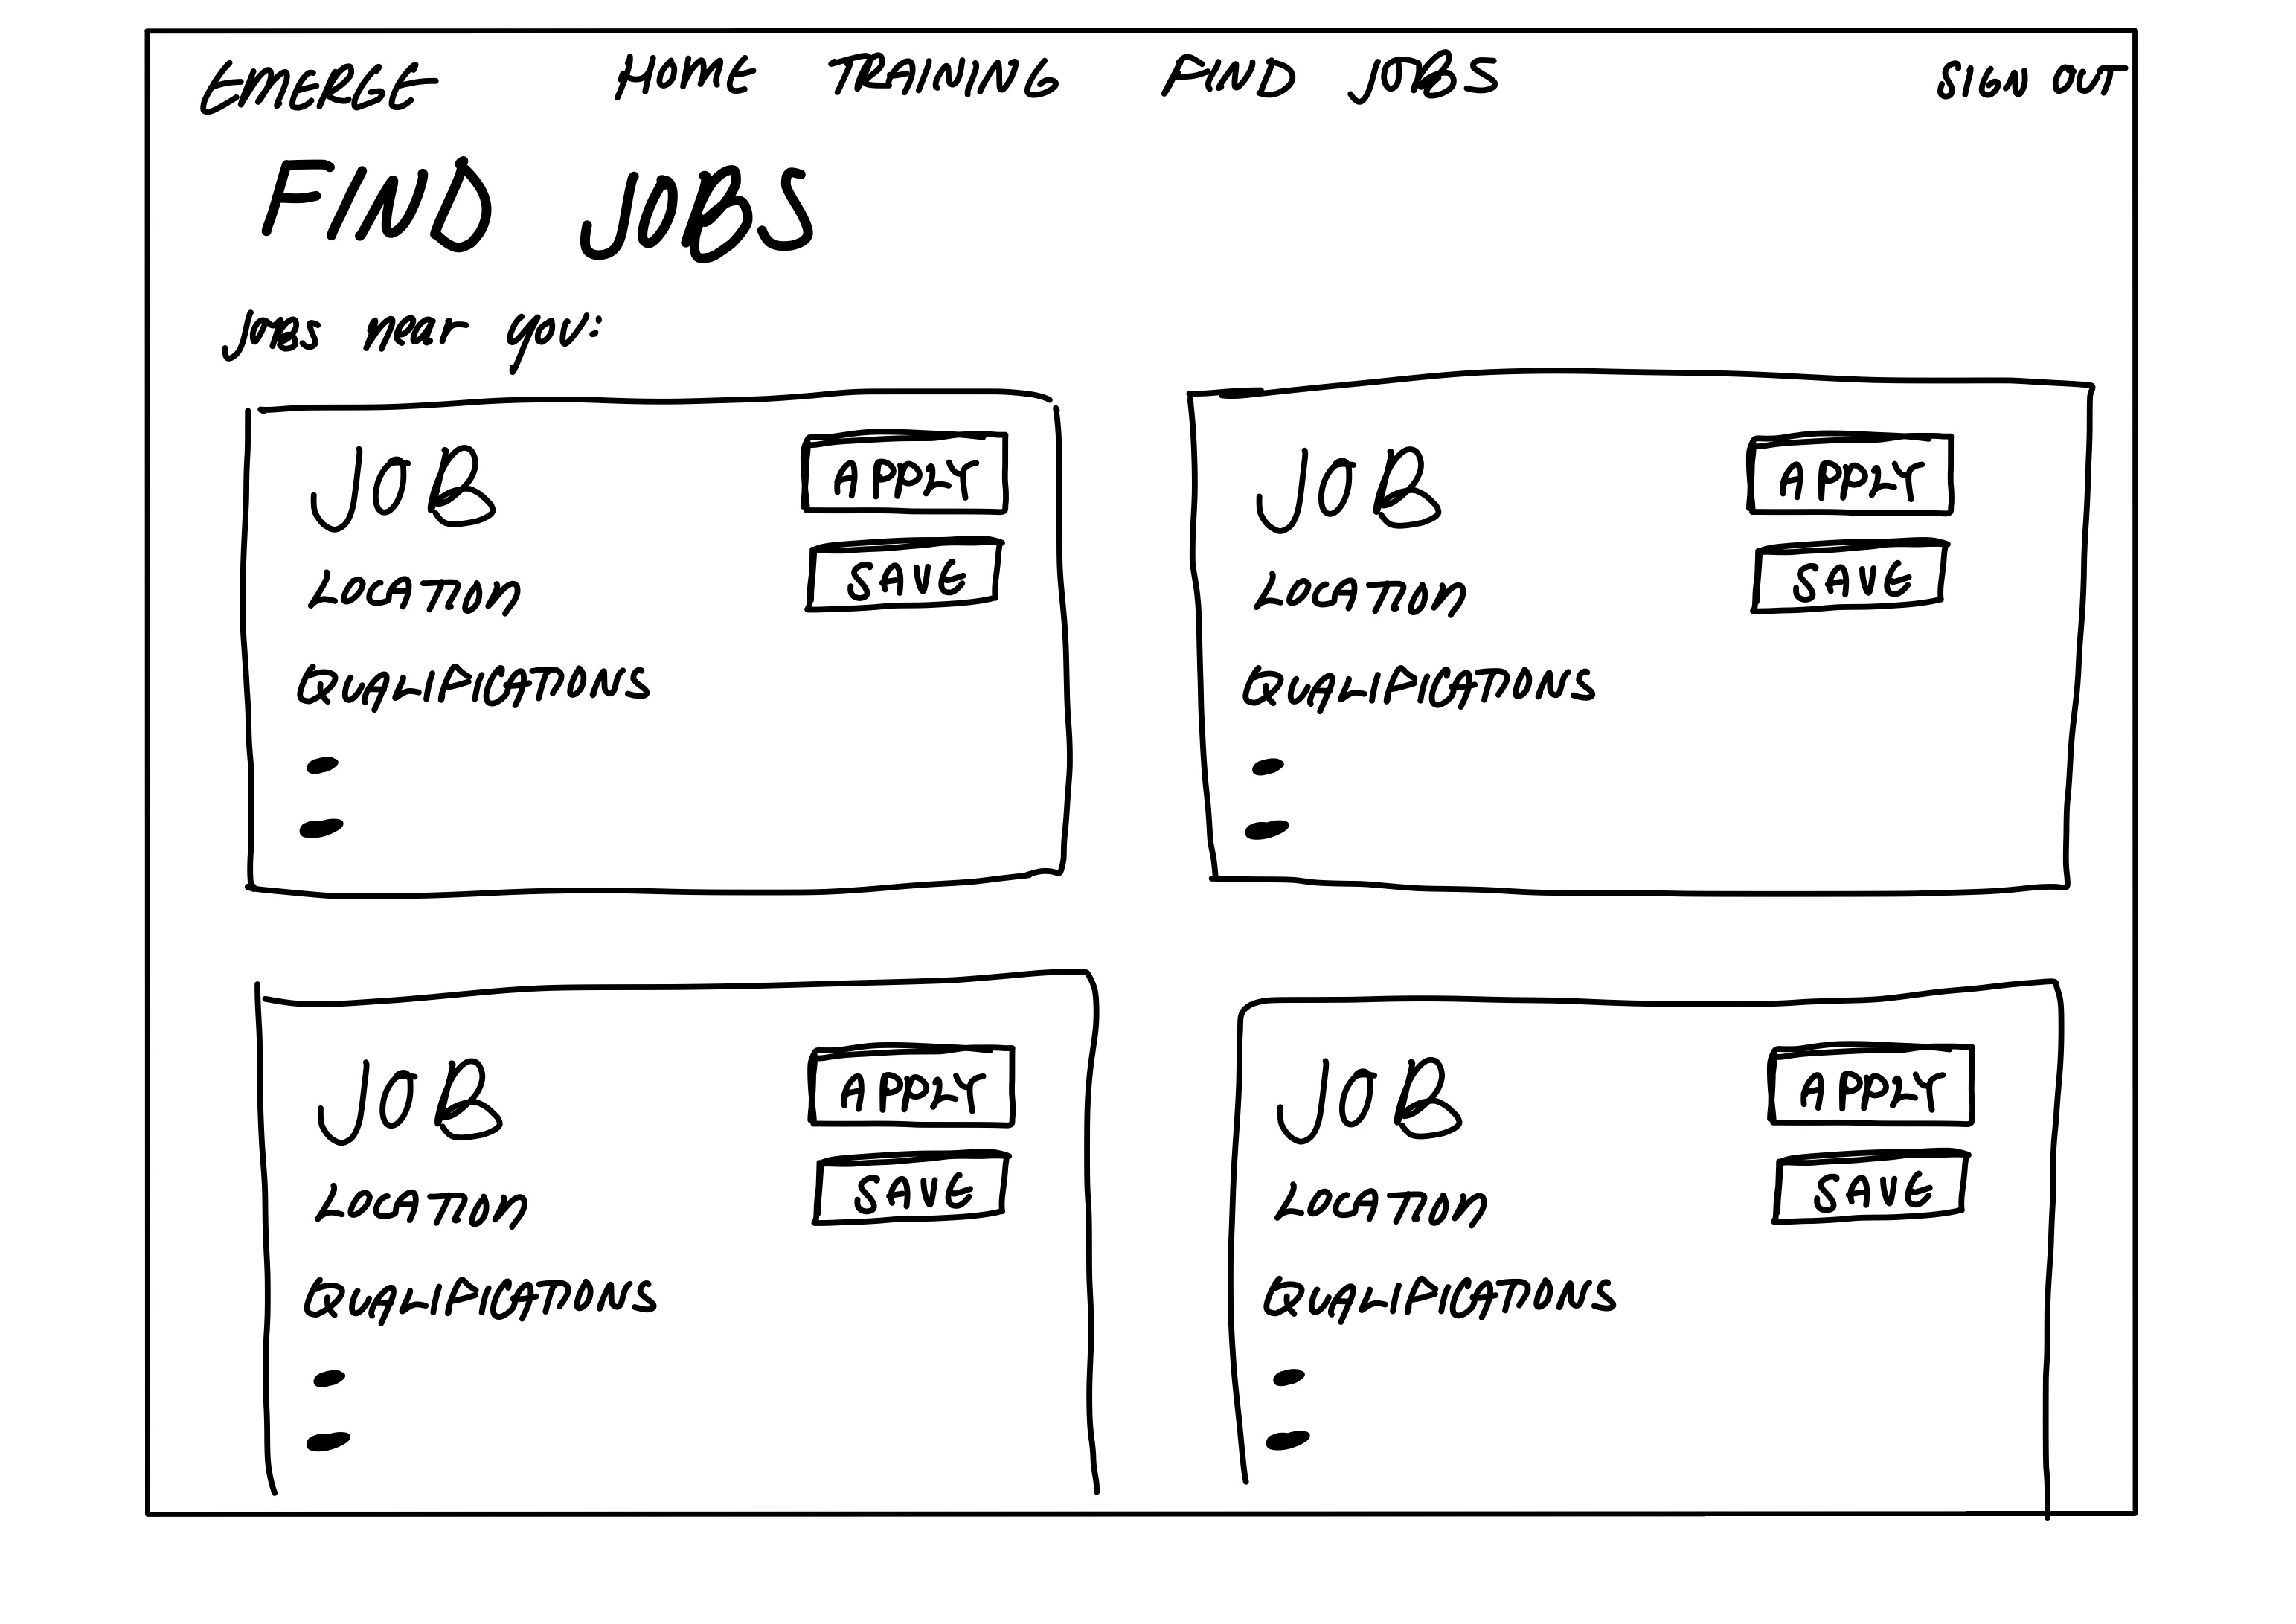 EMERGE HOME TRAINING FIND JOBS SIGN OUT
FIND JOBS
Jobs near you:
JOB APPLY
LOCATION SAVE
QUALIFICATIONS
JOB APPLY
LOCATION SAVE
QUALIFICATIONS
JOB APPLY
LOCATION SAVE
QUALIFICATIONS
JOB APPLY
LOCATION SAVE
QUALIFICATIONS